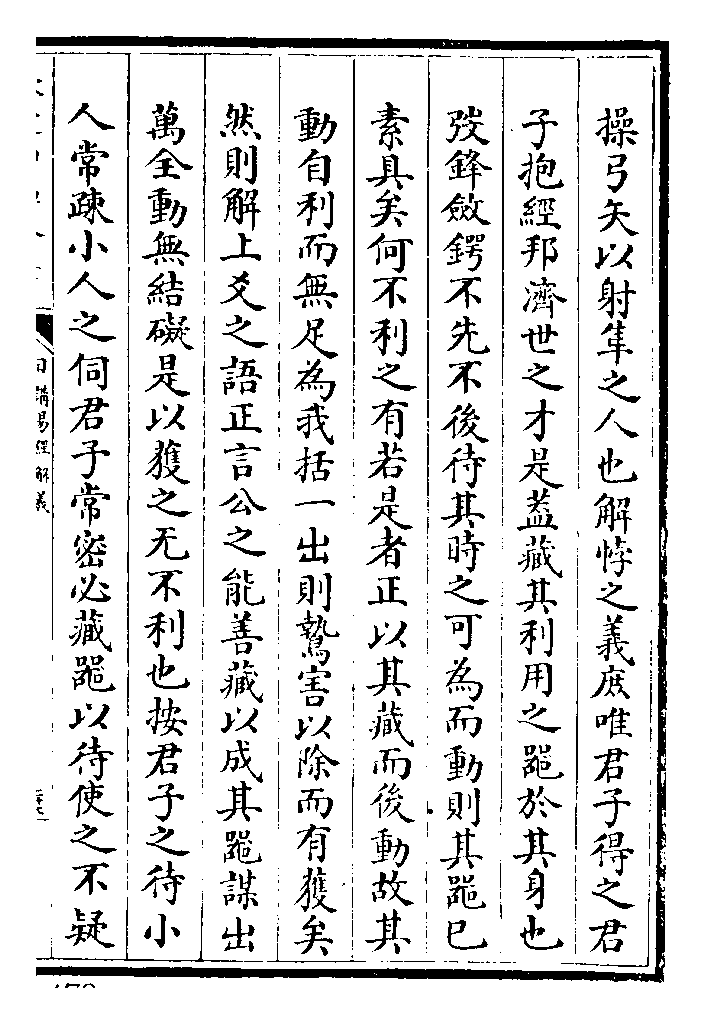 操弓矢以射隼之人也解悖之義庶唯君子得之君
子抱經邦濟世之才是葢藏其利用之噐於其身也
弢鋒斂鍔不先不後待其時之可為而動則其噐已
素具矣何不利之有若是者正以其藏而後動故其
動自利而無足為我括一出則鷙害以除而有獲矣
然則解上爻之語正言公之能善藏以成其噐謀出
萬全動無結礙是以獲之无不利也按君子之待小
人常疎小人之伺君子常密必藏噐以待使之不疑
日講易經解義